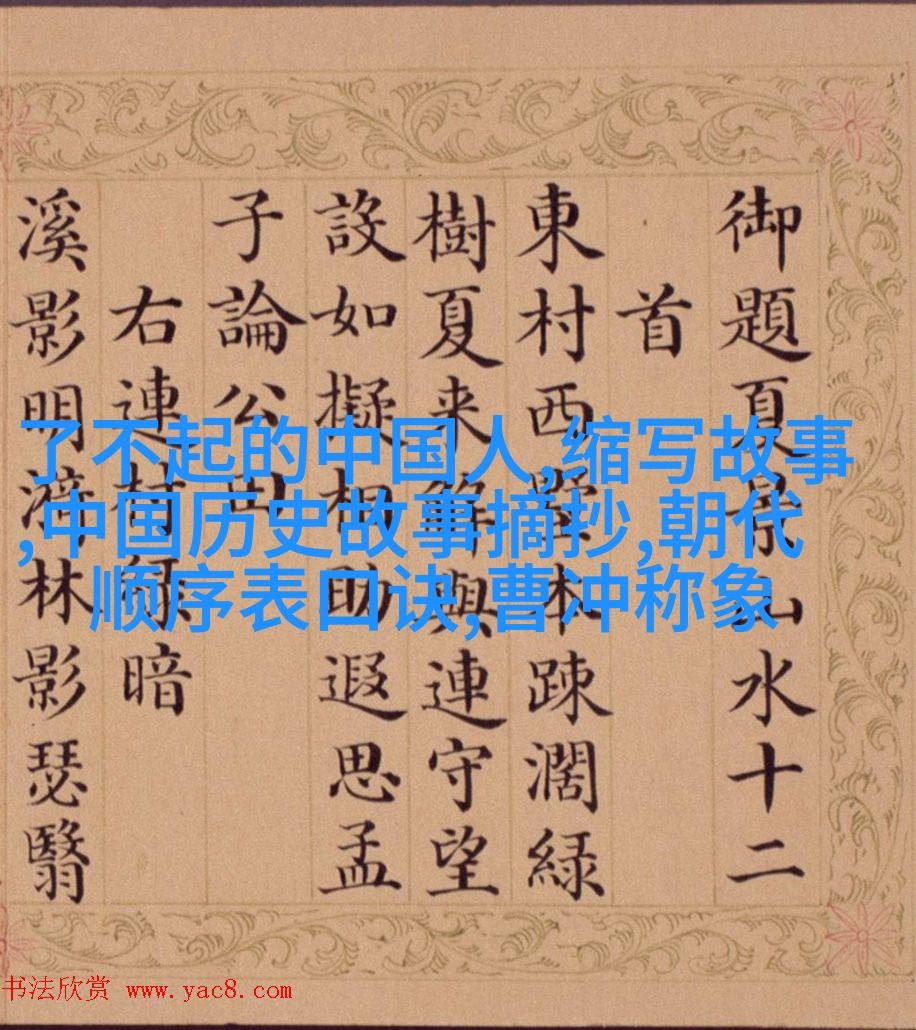 御題夏景山水十二
首
東村西墅本疎濶緑
樹夏来解與連守望
設如擬相助遐思孟
子論公田
右連村緑暗
溪影明林影瑟翳
了不起的中国人,缩写故事
,中国历史故事摘抄,朝代
顺序表口诀,曹冲称象
书法欣赏 www.yac8.com